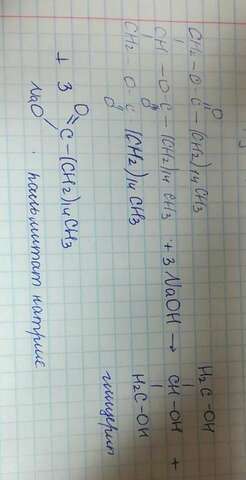 O
CH2-O-C-(CH2)14CH3
CH-O-C-(CH2)14CH3 + 3NaOH → CH-OH +
O
CH2-O-C(CH2)14CH3
O
H2C-OH
H2C-OH
глицерин
+ 3 O=C-(CH2)14CH3
NaO
пальмитат натрия